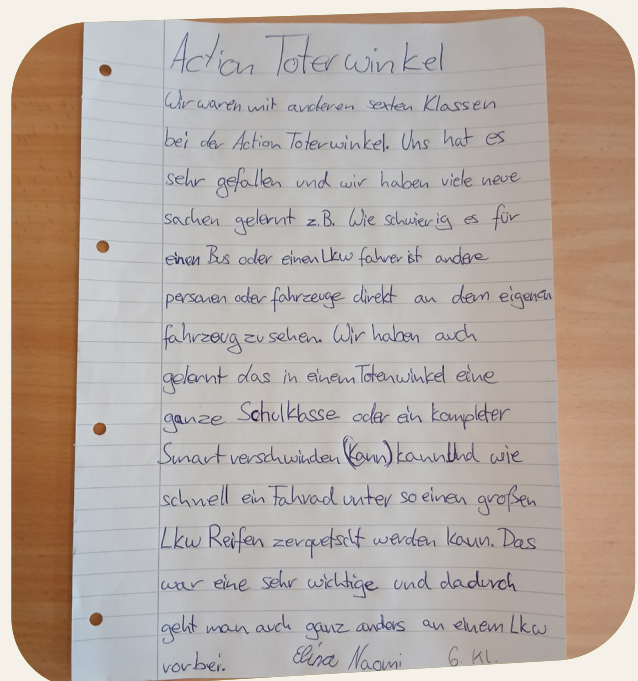 Action Toterwinkel
Wir waren mit anderen sexten Klassen
bei der Action Toterwinkel. Uns hat es
sehr gefallen und wir haben viele neue
sachen gelernt z.B. Wie schwierig es für
einen Bus oder einen Lkw fahrer ist andere
personen oder fahrzeuge direkt an dem eigenen
fahrzeug zu sehen. Wir haben auch
gelernt das in einem Totenwinkel eine
ganze Schulklasse oder ein kompleter
Smart verschwinden (kann) kann Und wie
schnell ein Fahrad unter so einen großen
Lkw Reifen zerquetscht werden kann. Das
war eine sehr wichtige und dadurch
geht man auch ganz anders an einem Lkw
vorbei. Elisa Naomi 6. Kl.